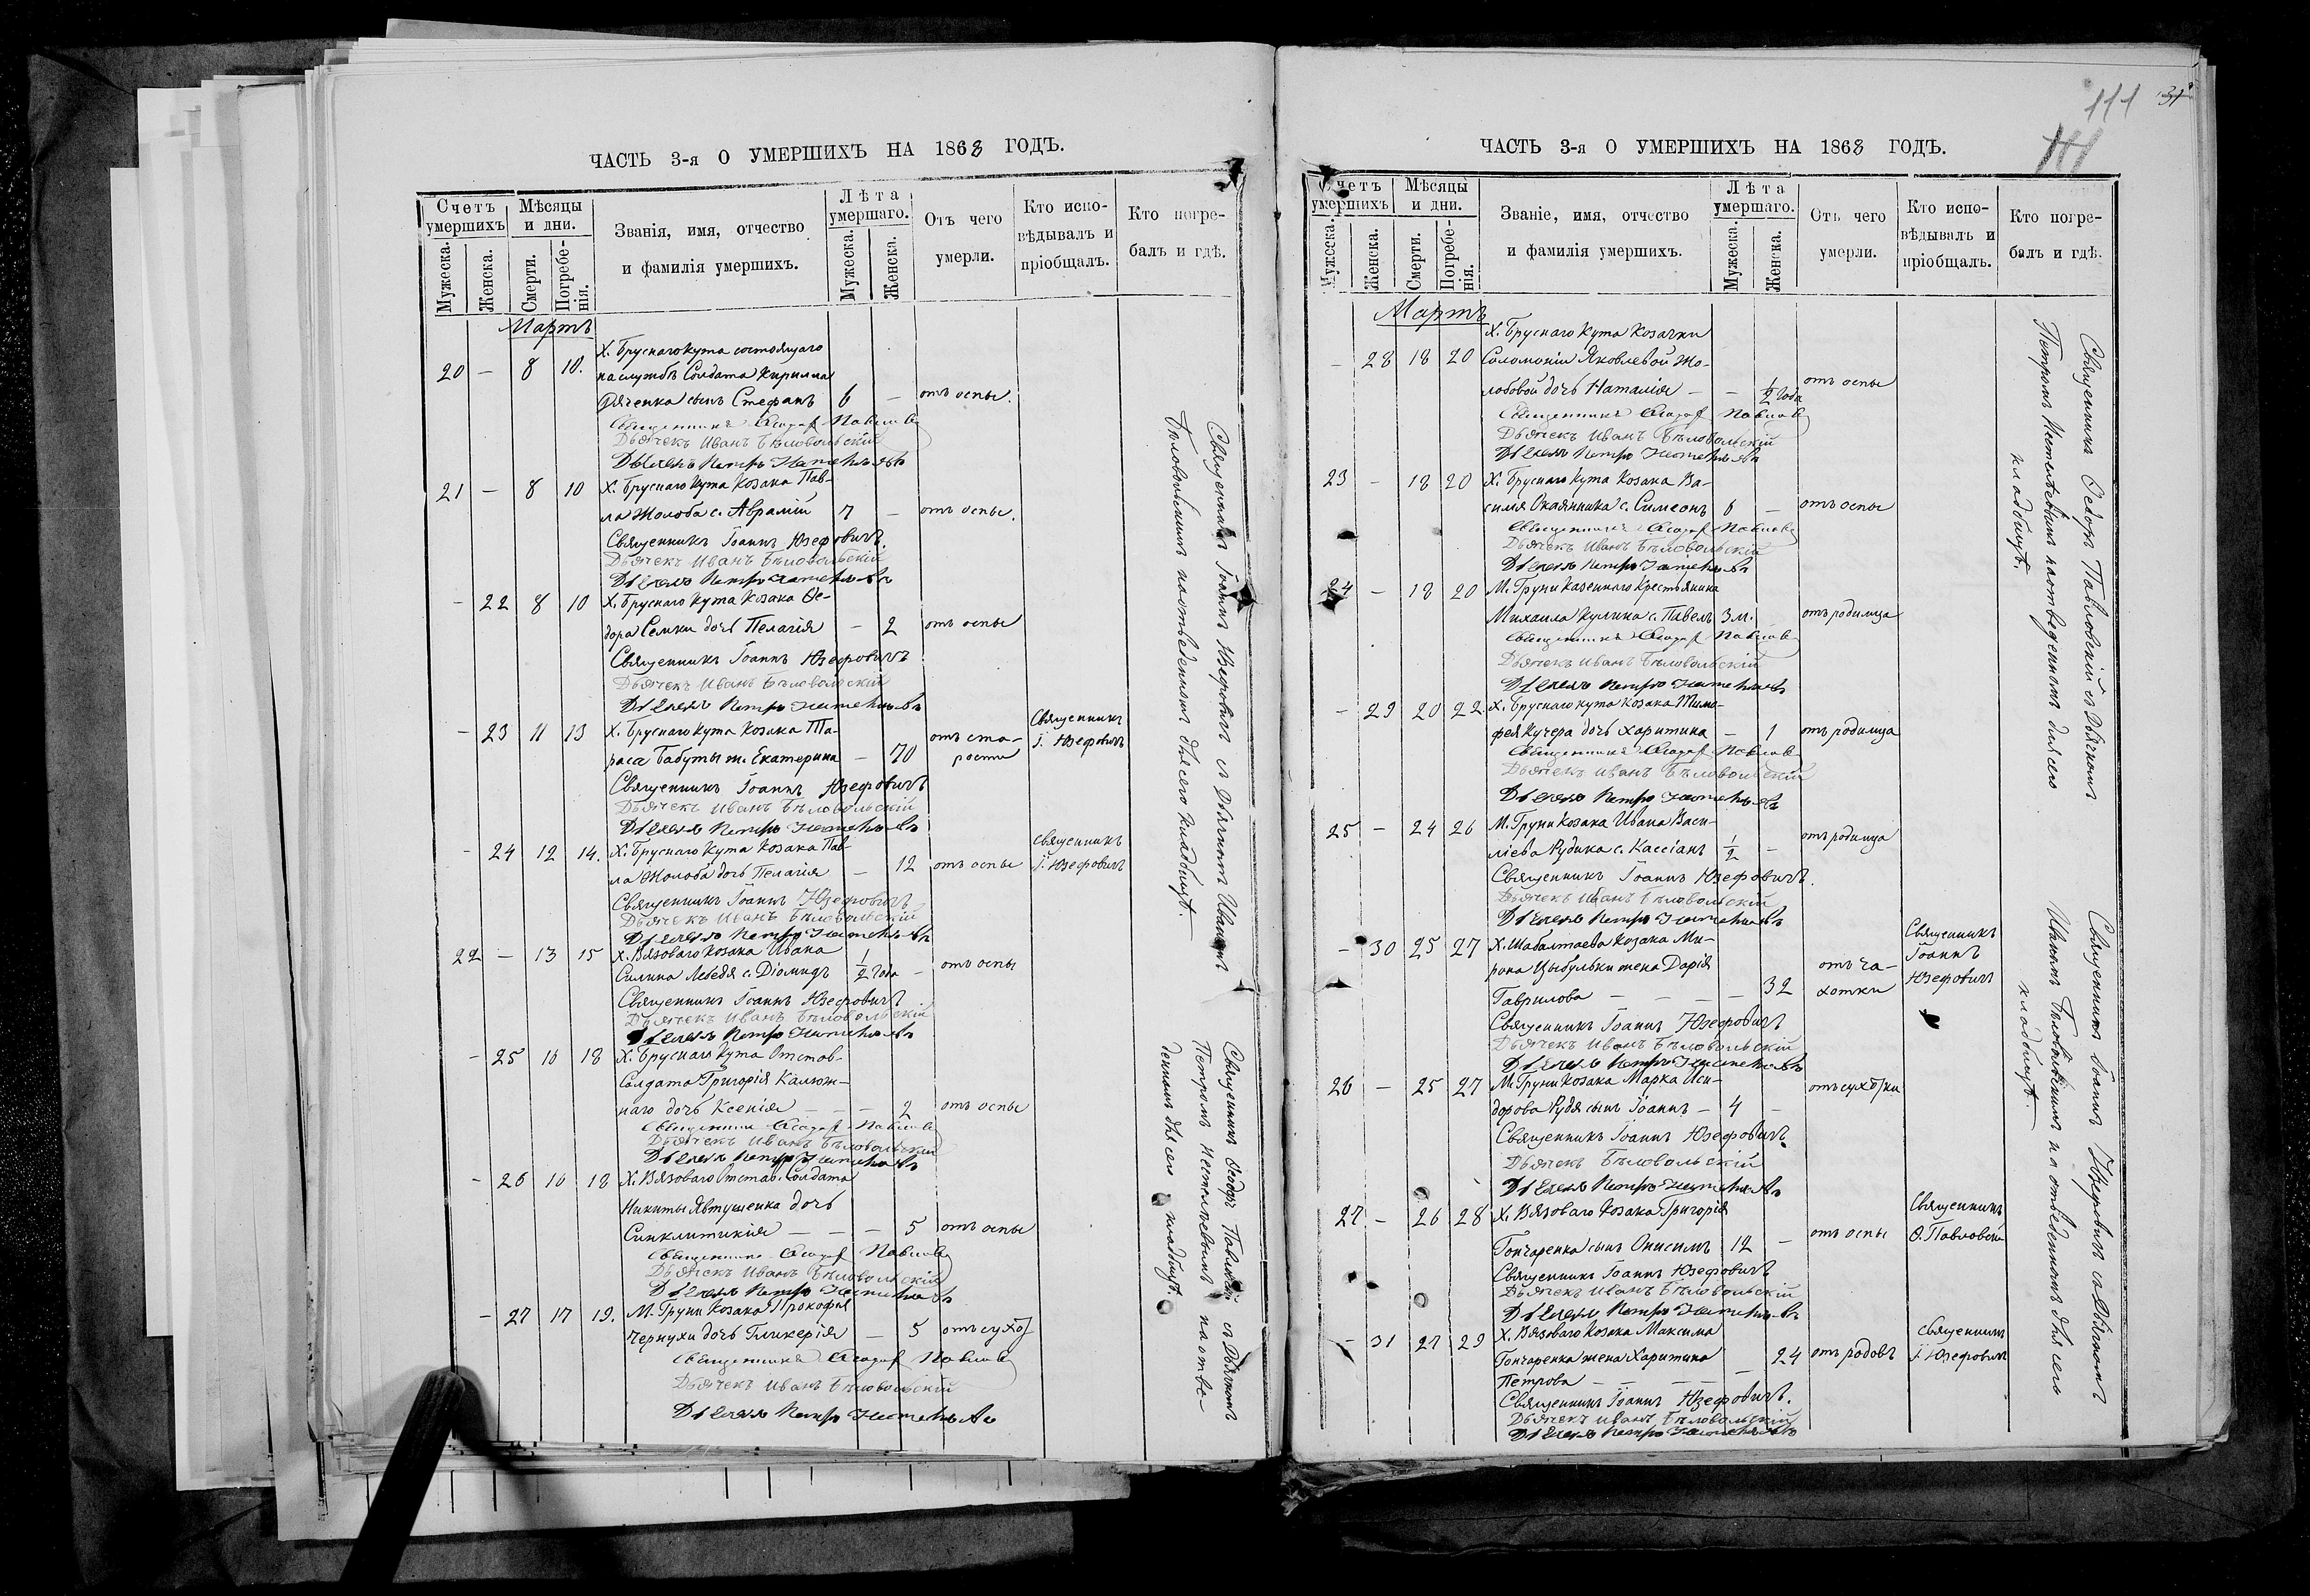 ЧАСТЬ 3-я О УМЕРШИХЪ НА 1863 ГОДЪ.
Счетъ умершихъ
Мѣсяцы и дни.
Званія, имя, отчество и фамилія умершихъ.
Лѣта умершаго.
Отъ чего умерли.
Кто испо-
вѣдывалъ и
пріобщалъ.
Кто погре-
балъ и гдѣ.
Мужеска.
Женска.
Смерти.
Погребе-
нія.
Мужеска.
Женска.
Мартъ
Х. Бруснаго Кута состоящаго
20 — 8 10. на службѣ Солдата Кирилла
сынъ Стефанъ 6 — отъ оспы.
Священникъ Ѳеодор Павлов
Дьячекъ Иванъ Бѣловольскій
Петръ
21 — 8 10 Х. Бруснаго Кута Козака Пав-
ла Жолоба с. Аврамій 7 — отъ оспы.
Священникъ Іоаннъ Юзефовичъ.
Дьячекъ Иванъ Бѣловольскій
Петръ
— 22 8 10 Х. Бруснаго Кута Козака Ѳе-
дора Семки дочь Пелагія — 2 отъ оспы
Священникъ Іоаннъ Юзефовичъ
Дьячекъ Иванъ Бѣловольскій
Петръ
— 23 11 13 Х. Бруснаго Кута Козака Та-
раса Бабуты ж. Екатерина — 70 отъ ста-
рости
Священникъ
І. Юзефовичъ
Священникъ Іоаннъ Юзефовичъ
Дьячекъ Иванъ Бѣловольскій
Петръ
— 24 12 14. Х. Бруснаго Кута Козака Пав-
ла Жолоба дочь Пелагія — 12 отъ оспы
Священникъ
І. Юзефовичъ
Священникъ Іоаннъ Юзефовичъ
Дьячекъ Иванъ Бѣловольскій
Петръ
22 — 13 15 Х. Вязоваго Козака Ивана
Силина Лебедя с. Діомидъ 1/2 года — отъ оспы
Священникъ Іоаннъ Юзефовичъ.
Дьячекъ Иванъ Бѣловольскій
Петръ
— 25 16 18 Х. Бруснаго Кута Отстав-
Солдата Григорія Калюж-
наго дочь Ксенія — — — 2 отъ оспы
Ѳеодор Павлов
Дьячекъ Иванъ Бѣловольскій
Петръ
— 26 16 18 Х. Вязоваго Отстав. Солдата
Никиты Явтушенка дочь
Синклитикія — — — 5 отъ оспы
Священникъ Ѳеодор Павлов
Дьячекъ Иванъ Бѣловольскій
Петръ
— 27 17 19. М. Груни Козака Прокофія
Чернухи дочь Гликерія — 5 отъ сухо
Священникъ Ѳеодор Павлов
Дьячекъ Иванъ Бѣловольскій
Петръ
Священникъ Іоаннъ Юзефовичъ съ Дьячкомъ Иваномъ
Бѣловольскимъ на отведенномъ для сего кладбищѣ.
Священникъ Ѳеодоръ Павловскій съ Дьячкомъ
Петромъ на отве-
денномъ для сего кладбищѣ.
111 31
111
ЧАСТЬ 3-я О УМЕРШИХЪ НА 1863 ГОДЪ.
Счетъ умершихъ
Мѣсяцы и дни.
Званіе, имя, отчество и фамилія умершихъ.
Лѣта умершаго.
Отъ чего умерли.
Кто испо-
вѣдывалъ и
пріобщалъ.
Кто погре-
балъ и гдѣ.
Мужеска.
Женска.
Смерти.
Погребе-
нія.
Мужеска.
Женска.
Мартъ
Х. Бруснаго Кута Козачки
— 28 18 20 Соломоніи Яковлевой Жо-
лобовой дочь Наталія — — 1/2 года отъ оспы
Священникъ Ѳеодор Павлов
Дьячекъ Иванъ Бѣловольскій
Петръ
23 — 18 20 Х. Бруснаго Кута Козака Ва-
силія Окаянника с. Симеонъ 6 — отъ оспы
Священникъ Ѳеодор Павлов
Дьячекъ Иванъ Бѣловольскій
Петръ
24 — 18 20 М. Груни Казеннаго Крестьянина
Михаила Кулика с. Павелъ 3 м. отъ родимца
Священникъ Ѳеодор Павлов
Дьячекъ Иванъ Бѣловольскій
Петръ
— 29 20 22 Х. Бруснаго Кута Козака Тимо-
фея Кучера дочь Харитина — 1 отъ родимца
Священникъ Ѳеодор Павлов
Дьячекъ Иванъ Бѣловольскій
Петръ
25 — 24 26 М. Груни Козака Ивана Васи-
ліева Рудика с. Кассіанъ 1/2 — отъ родимца
Священникъ Іоаннъ Юзефовичъ.
Дьячекъ Иванъ Бѣловольскій
Петръ
— 30 25 27 Х. Шабалтаева Козака Ми-
рона Цыбульки жена Дарія
Гаврилова — — — — 32 отъ ча-
хотки
Священникъ
Іоаннъ
Юзефовичъ
Священникъ Іоаннъ Юзефовичъ
Дьячекъ Иванъ Бѣловольскій
Петръ
26 — 25 27 М. Груни Козака Марка Иси-
дорова Рудя сынъ Іоаннъ — 4 — отъ сухотки
Священникъ Іоаннъ Юзефовичъ.
Дьячекъ Бѣловольскій
Петръ
27 — 26 28 Х. Вязоваго Козака Григорія
Гончаренка сынъ Онисимъ 12 — отъ оспы
Священникъ
Ѳ. Павловскій
Священникъ Іоаннъ Юзефовичъ
Дьячекъ Иванъ Бѣловольскій
Петръ
— 31 27 29 Х. Вязоваго Козака Максима
Гончаренка жена Харитина — 24 отъ родовъ
Петрова — — — —
Священникъ
І. Юзефовичъ
Священникъ Іоаннъ Юзефовичъ.
Дьячекъ Иванъ Бѣловольскій
Петръ
Священникъ Ѳедоръ Павловскій съ Дьячкомъ
Петромъ на отведенномъ для сего
кладбищѣ.
Священникъ Іоаннъ Юзефовичъ съ Дьячкомъ
Иваномъ Бѣловольскимъ на отведенномъ для сего
кладбищѣ.